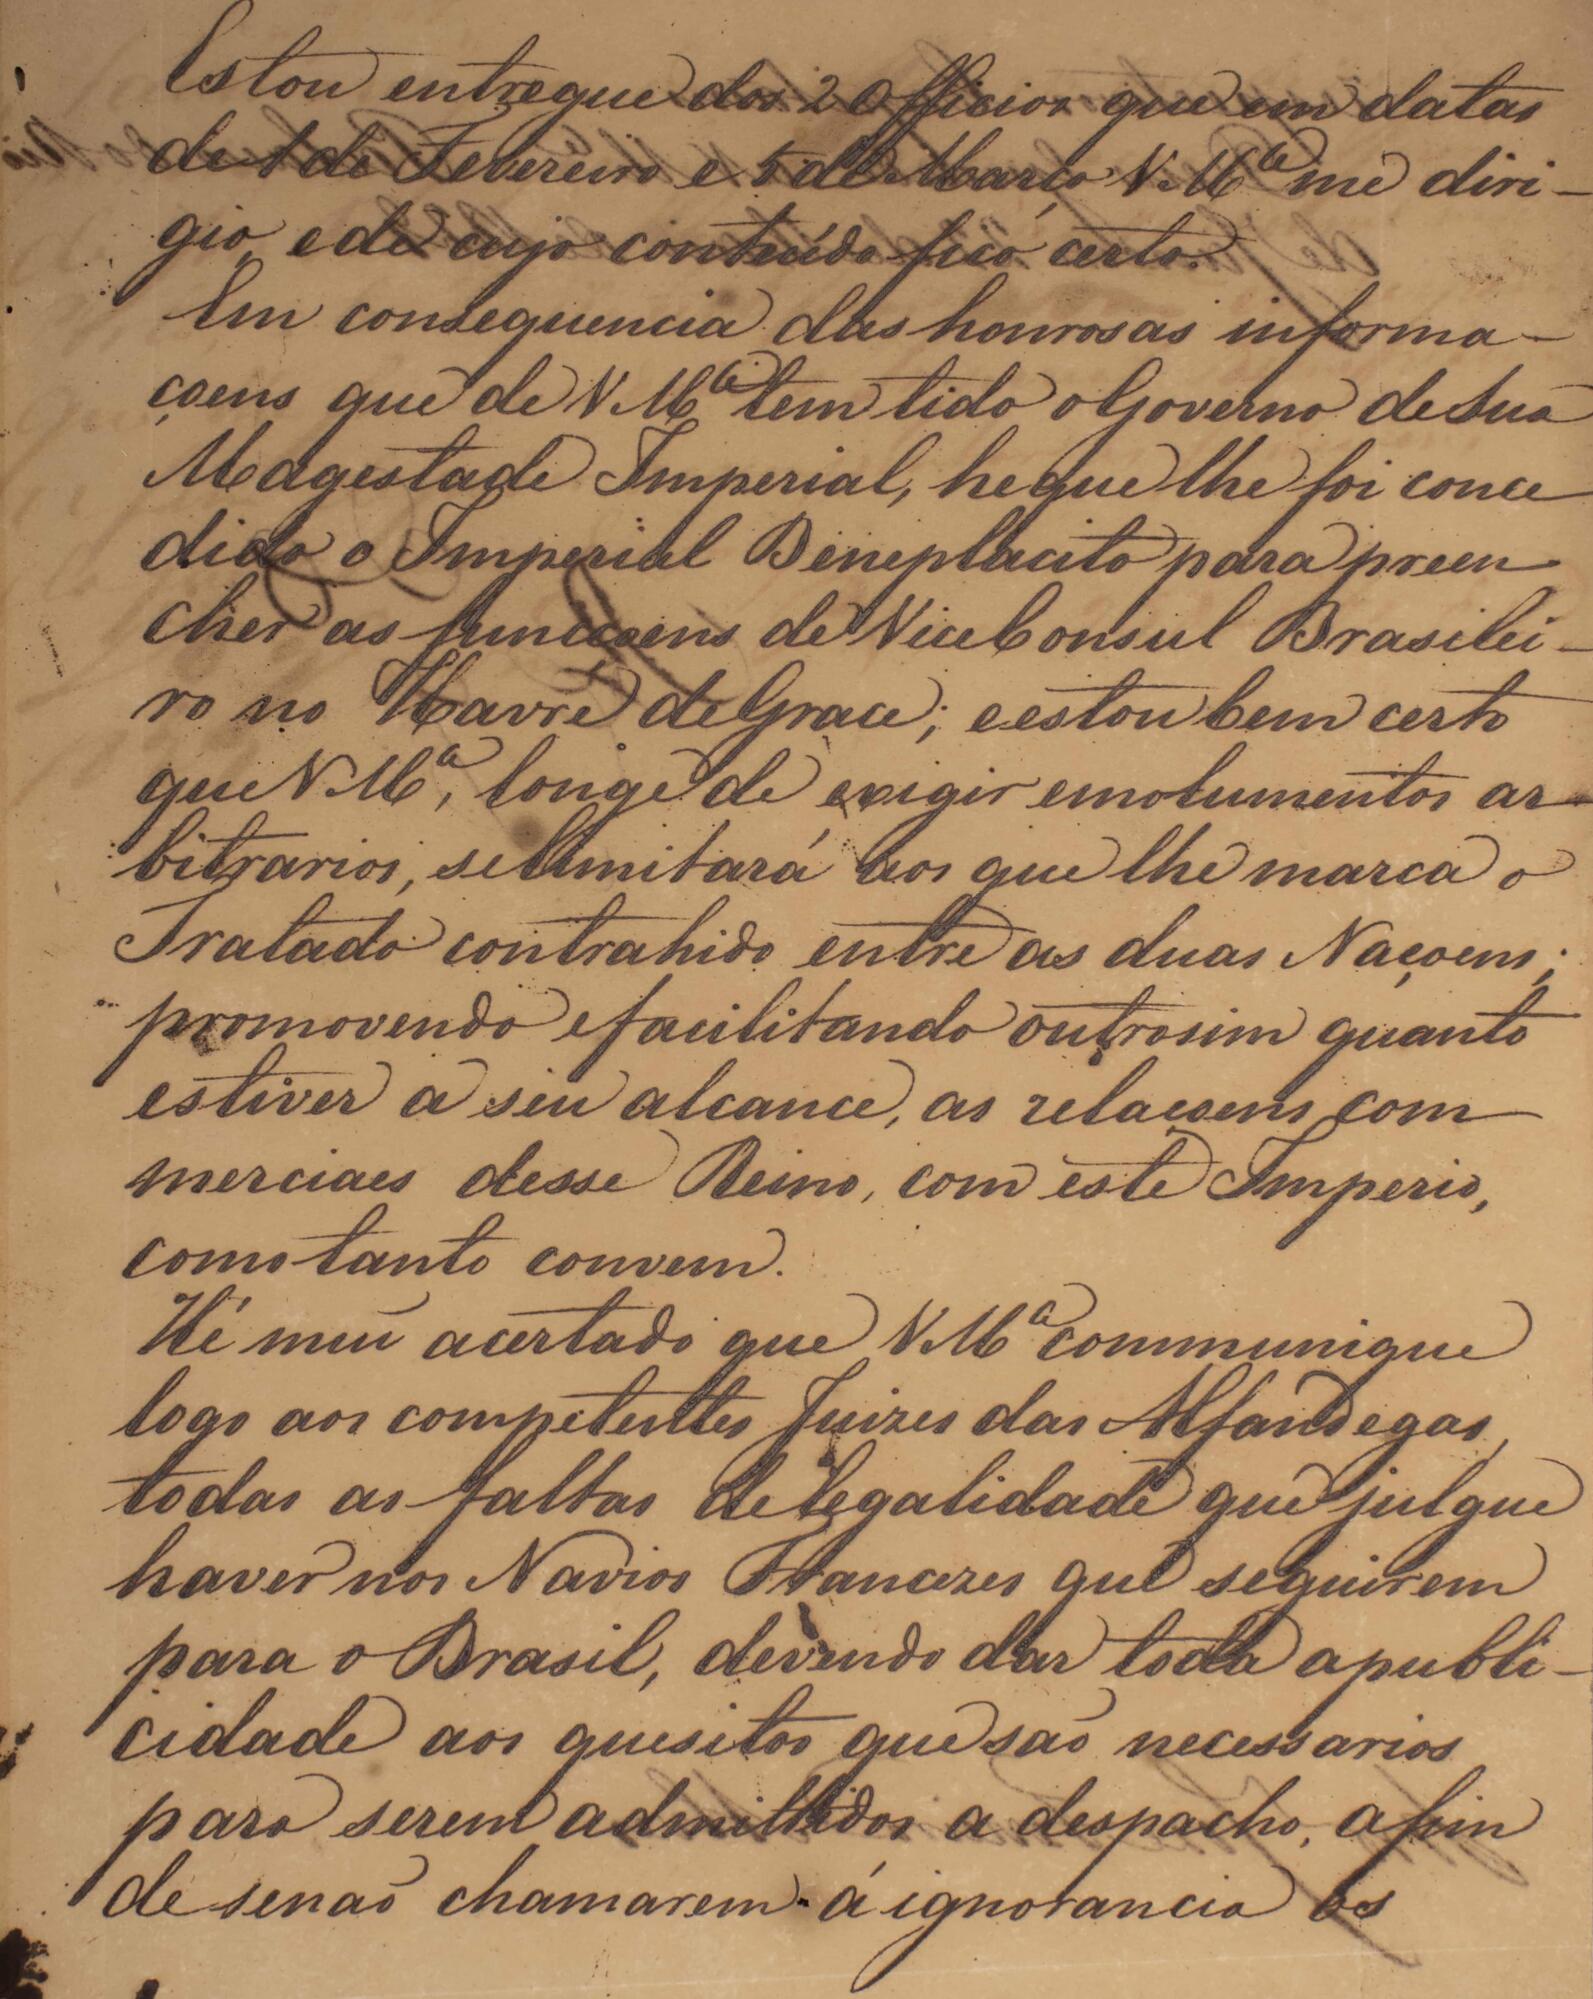 Estou entregue dos 2 Officios que em datas
de 1 de Fevereiro e 5 de Março V. M.ce me diri-
gio, e de cujo conteúdo fico certo.
Em consequencia das honrosas informa-
çoens que de V. M.ce tem tido o Governo de Sua
Magestade Imperial, he que lhe foi conce
dido o Imperial Beneplacito para preen
cher as funcçoens de Vice Consul Brasilei-
ro no Havre de Grace; e estou bem certo
que V. M.ce, longe de exigir emolumentos ar-
bitrarios, se limitará aos que lhe marca o
Tratado contrahido entre as duas Naçoens;
promovendo e facilitando outrosim quanto
estiver a seu alcance, as relaçoens com
merciaes desse Reino, com este Imperio,
como tanto convem.
Hé mui acertado que V. M.ce communique
logo aos competentes Juizes das Alfandegas,
todas as faltas de legalidade que julgue
haver nos Navios Francezes que seguirem
para o Brasil, devendo dar toda a publi-
cidade aos quesitos que são necessarios
para serem admittidos a despacho, a fim
de senão chamarem á ignorancia os